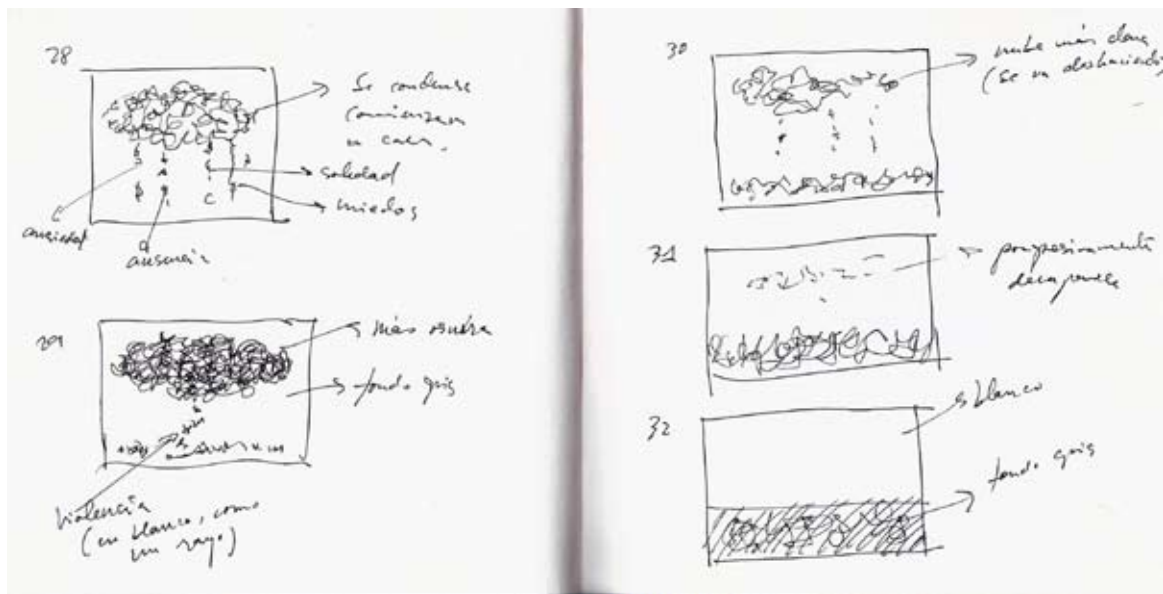 28
Se condensa
comienzan
a caer.
soledad
miedos
ansiedad
ausencia
29
más oscura
fondo gris
violencia
(en blanco, como
un rayo)
30
nube más clara
(se va deshaciendo)
31
progresivamente
desaparece
32
blanco
fondo gris